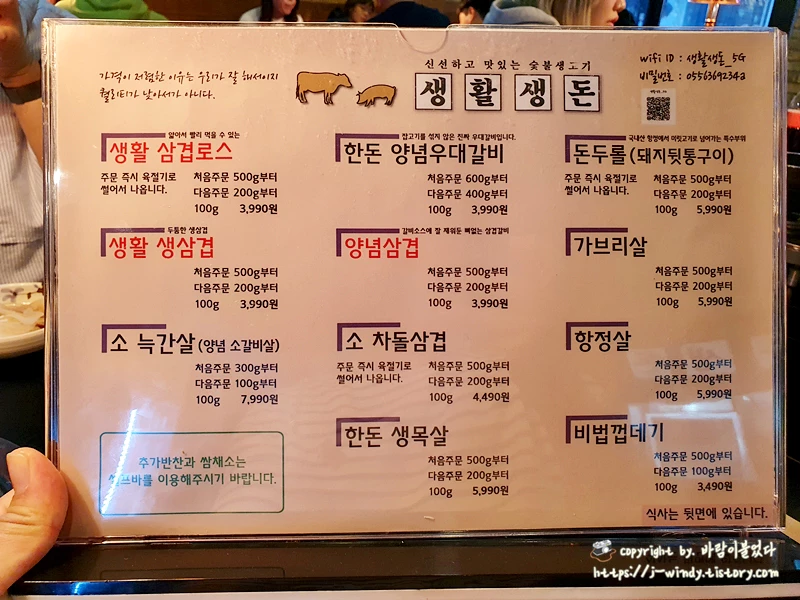 가격이 저렴한 이유는 우리가 잘 해서이지
퀄리티가 낮아서가 아니다.
신선하고 맛있는 숯불생고기
생활생돈
wifi ID : 생활생돈_5G
비밀번호 : 0556369234a
얇아서 빨리 먹을 수 있는
생활 삼겹로스
주문 즉시 육절기로
썰어서 나옵니다.
처음주문 500g부터
다음주문 200g부터
100g 3,990원
두툼한 생삼겹
생활 생삼겹
처음주문 500g부터
다음주문 200g부터
100g 3,990원
소 늑간살(양념 소갈비살)
처음주문 300g부터
다음주문 100g부터
100g 7,990원
추가반찬과 쌈채소는
셀프바를 이용해주시기 바랍니다.
잡고기를 섞지 않은 진짜 우대갈비입니다.
한돈 양념우대갈비
처음주문 600g부터
다음주문 400g부터
100g 3,990원
갈비소스에 잘 재워둔 뼈없는 삼겹갈비
양념삼겹
처음주문 500g부터
다음주문 200g부터
100g 3,990원
소 차돌삼겹
주문 즉시 육절기로
썰어서 나옵니다.
처음주문 500g부터
다음주문 200g부터
100g 4,490원
한돈 생목살
처음주문 500g부터
다음주문 200g부터
100g 5,990원
국내산 항정에서 미릿고기로 넘어가는 특수부위
돈두롤(돼지뒷통구이)
주문 즉시 육절기로
썰어서 나옵니다.
처음주문 500g부터
다음주문 200g부터
100g 5,990원
가브리살
처음주문 500g부터
다음주문 200g부터
100g 5,990원
항정살
처음주문 500g부터
다음주문 200g부터
100g 5,990원
비법껍데기
처음주문 500g부터
다음주문 100g부터
100g 3,490원
식사는 뒷면에 있습니다.
copyright by. 바람이불었다
https://j-windy.tistory.com